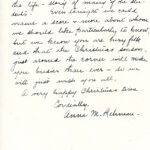 the life - story of many of the stu-
dents. Even tonight we could
name a score & more about whom
we should like particularly to know,
but we know you are busy folk
and that the Christmas season,
just around the corner will make
you busier than ever - so we
will just wish you all
a very happy Christmas time
Cordially,
Anna M.